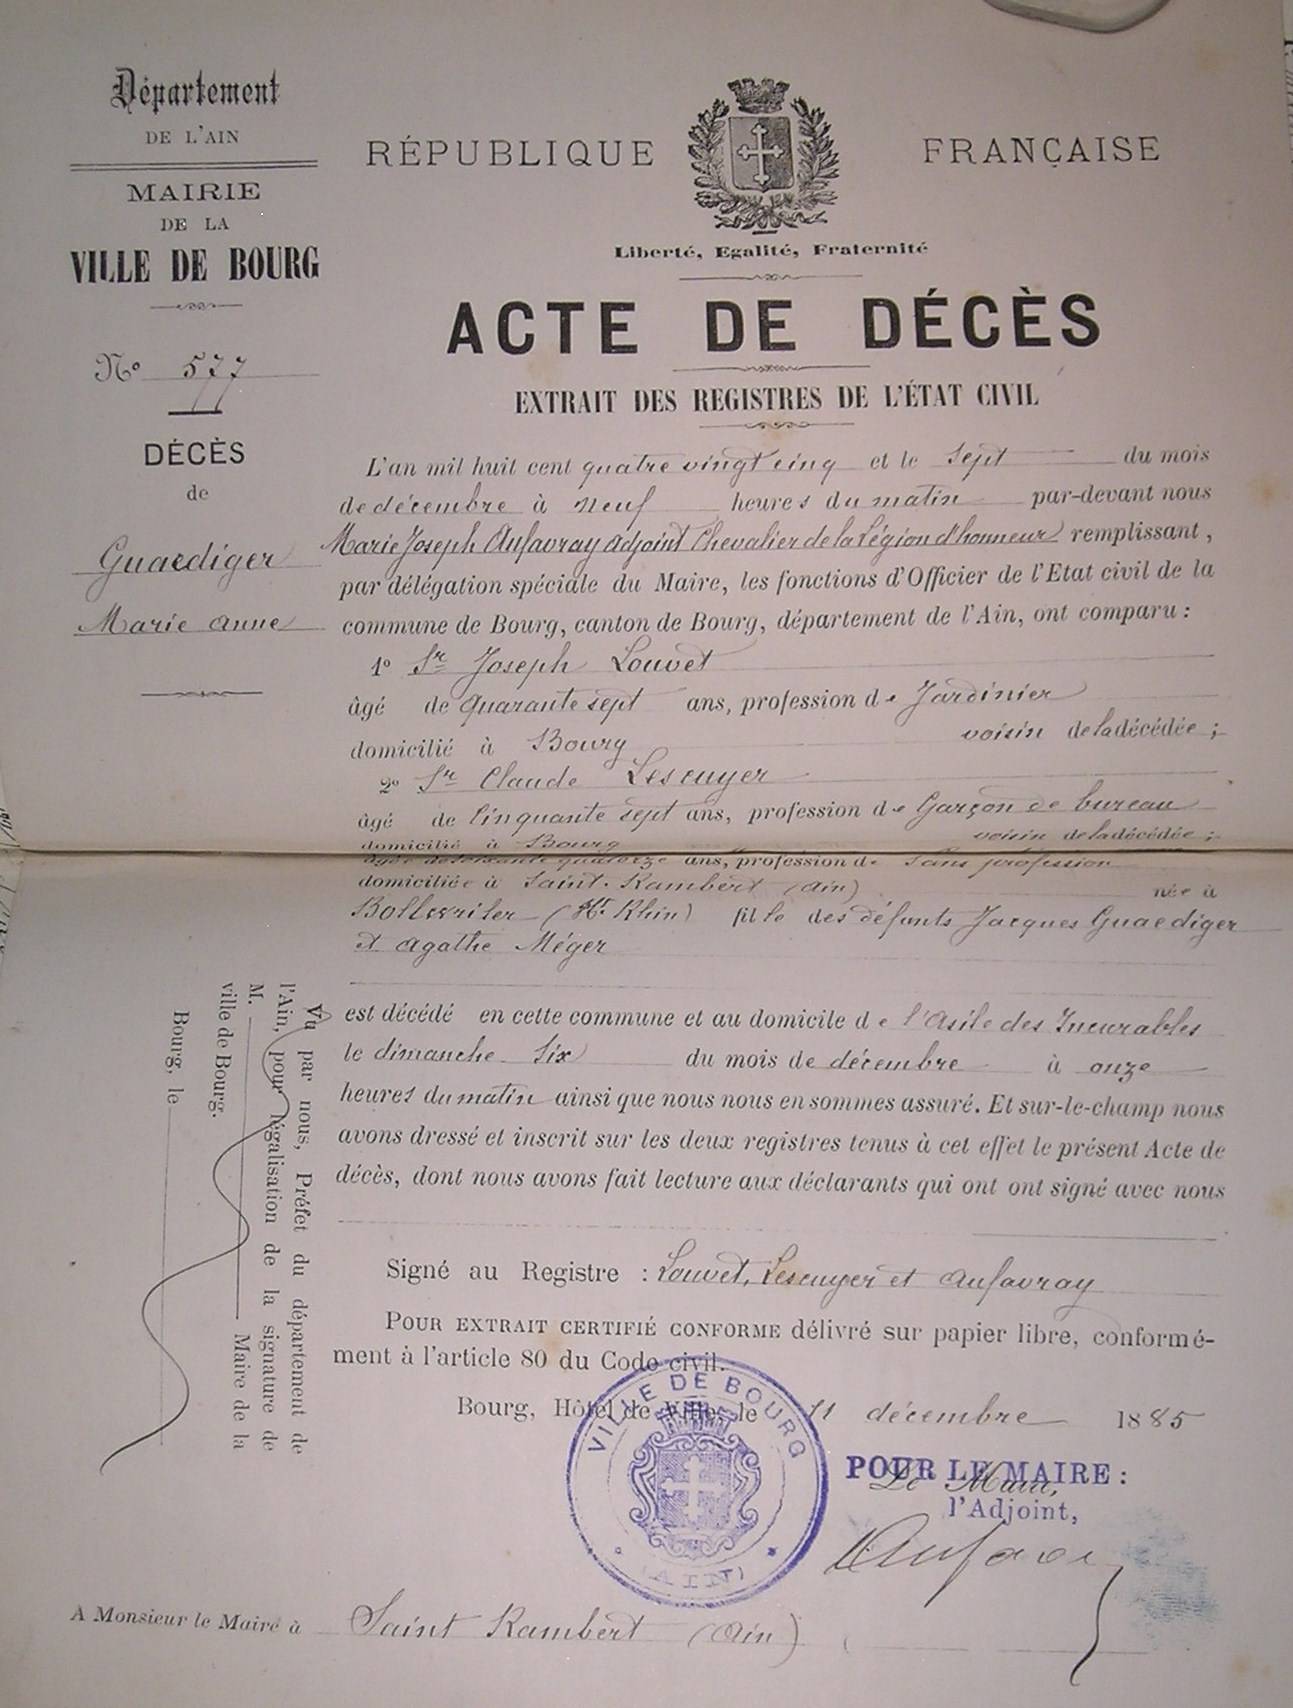 Département
DE L'AIN
MAIRIE
DE LA
VILLE DE BOURG
N° 577
DÉCÈS
de
Guaediger
Marie Anne
RÉPUBLIQUE FRANÇAISE
Liberté, Egalité, Fraternité
ACTE DE DÉCÈS
EXTRAIT DES REGISTRES DE L'ÉTAT CIVIL
L'an mil huit cent quatre vingt cinq et le sept du mois
de décembre à neuf heures du matin par-devant nous
Marie Joseph Aufavray adjoint Chevalier de la Légion d'honneur remplissant,
par délégation spéciale du Maire, les fonctions d'Officier de l'Etat civil de la
commune de Bourg, canton de Bourg, département de l'Ain, ont comparu :
1° Sr Joseph Louvet
âgé de quarante sept ans, profession de Jardinier
domicilié à Bourg voisin de la décédée ;
2° Sr Claude Lescuyer
âgé de Cinquante sept ans, profession de Garçon de bureau
domicilié à Bourg voisin de la décédée ;
âgée de soixante quatorze ans, profession de Sans profession
domiciliée à Saint-Rambert (Ain) née à
(Ht Rhin) fille des défunts Jacques Guaediger
et Agathe Méger
est décédé en cette commune et au domicile de l'asile des Incurables
le dimanche Six du mois de décembre à onze
heures du matin ainsi que nous nous en sommes assuré. Et sur-le-champ nous
avons dressé et inscrit sur les deux registres tenus à cet effet le présent Acte de
décès, dont nous avons fait lecture aux déclarants qui ont ont signé avec nous
Signé au Registre : Louvet, Lescuyer et Aufavray
POUR EXTRAIT CERTIFIÉ CONFORME délivré sur papier libre, conformé-
ment à l'article 80 du Code civil.
Bourg, Hôtel de Ville, le 11 décembre 1885
VILLE DE BOURG
(AIN)
POUR LE MAIRE :
Le Maire,
l'Adjoint,
Aufavray
Vu par nous, Préfet du département de
l'Ain, pour légalisation de la signature de
M. Maire de la
ville de Bourg.
Bourg, le
A Monsieur le Maire à Saint Rambert (Ain)